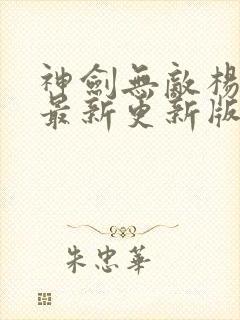 神劍無敵楊
最新更新版
朱忠華